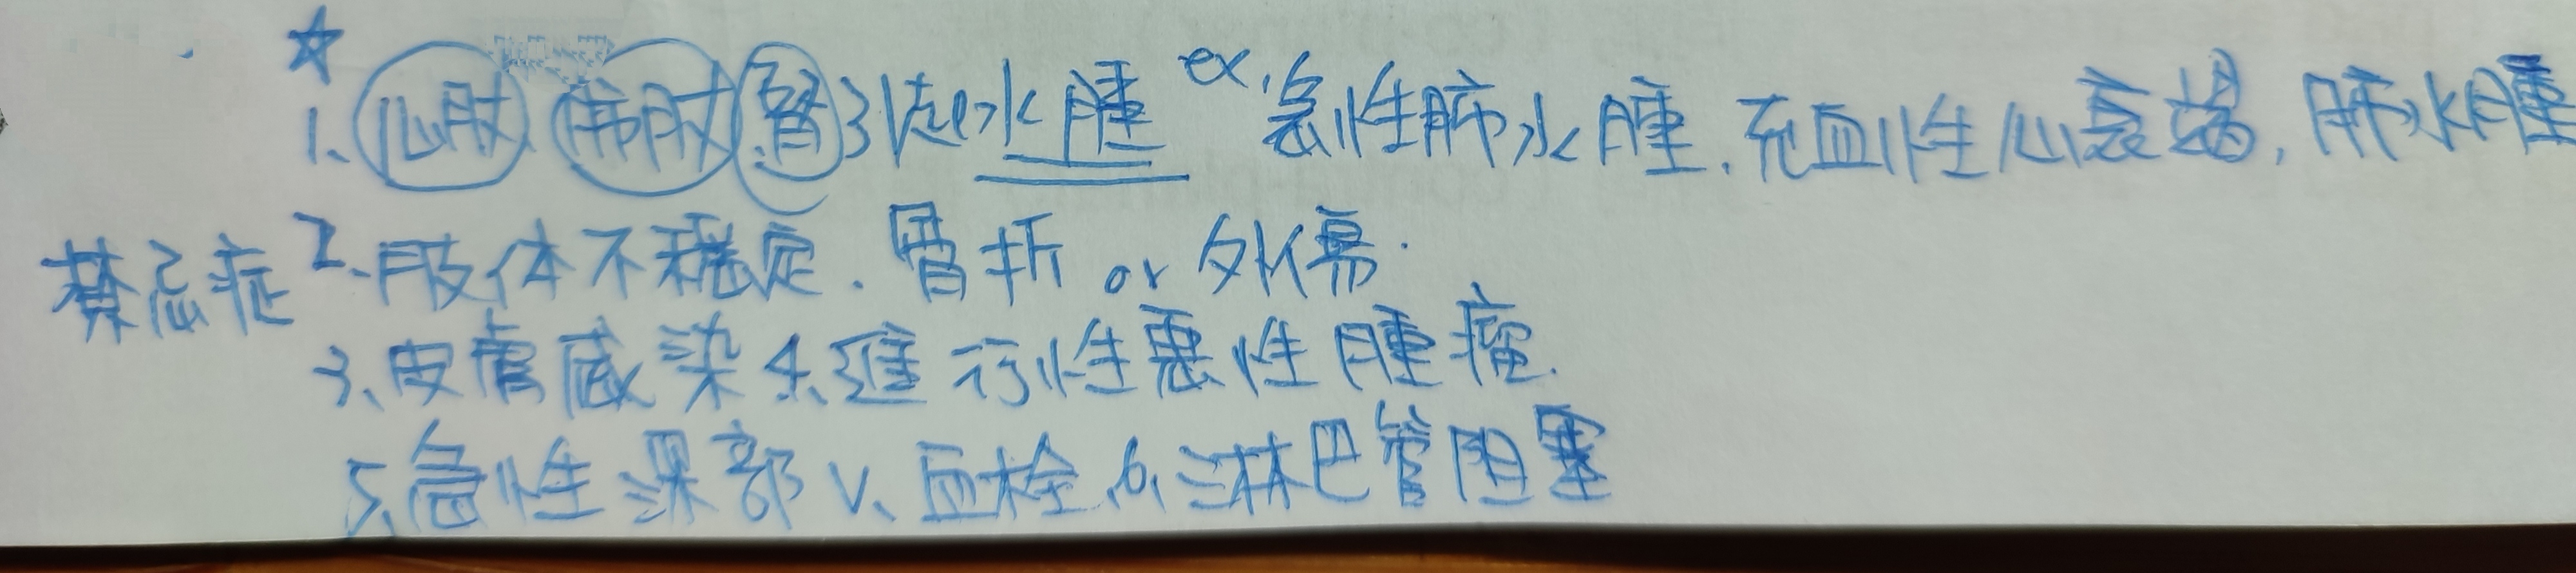 ☆
1. 心肺 肺臟 腎引起水腫 ex. 急性肺水腫. 充血性心衰竭, 肺水腫
禁忌症 2. 肢体不穩定. 骨折 or 外傷.
3. 皮膚感染 4. 進行性惡性腫瘤.
5. 急性深部 V. 血栓. 6. 淋巴管阻塞